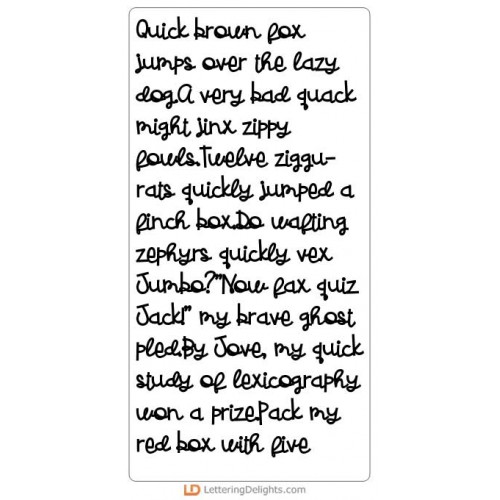 Quick brown fox
jumps over the lazy
dog.A very bad quack
might jinx zippy
fowls.Twelve ziggu-
rats quickly jumped a
finch box.Do wafting
zephyrs quickly vex
Jumbo?"Now fax quiz
Jack!" my brave ghost
pled.By Jove, my quick
study of lexicography
won a prize.Pack my
red box with five
LD LetteringDelights.com